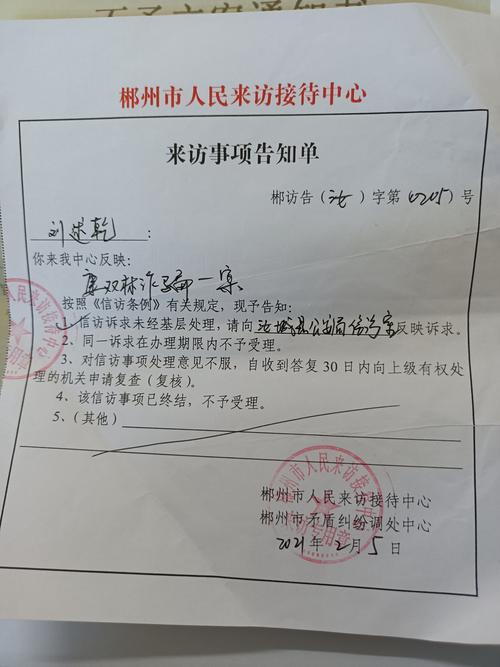 不予立案通知书
郴州市人民来访接待中心
来访事项告知单
郴访告（汝）字第（0205）号
刘 乾：
你来我中心反映：
双林诈骗一案
按照《信访条例》有关规定，现予告知：
1、信访诉求未经基层处理，请向汝城县公安局信访室反映诉求。
2、同一诉求在办理期限内不予受理。
3、对信访事项处理意见不服，自收到答复30日内向上级有权处
理的机关申请复查（复核）。
4、该信访事项已终结，不予受理。
5、（其他）
郴州市人民来访接待中心
郴州市矛盾纠纷调处中心
2021年2月5日
郴州市人民来访接待中心